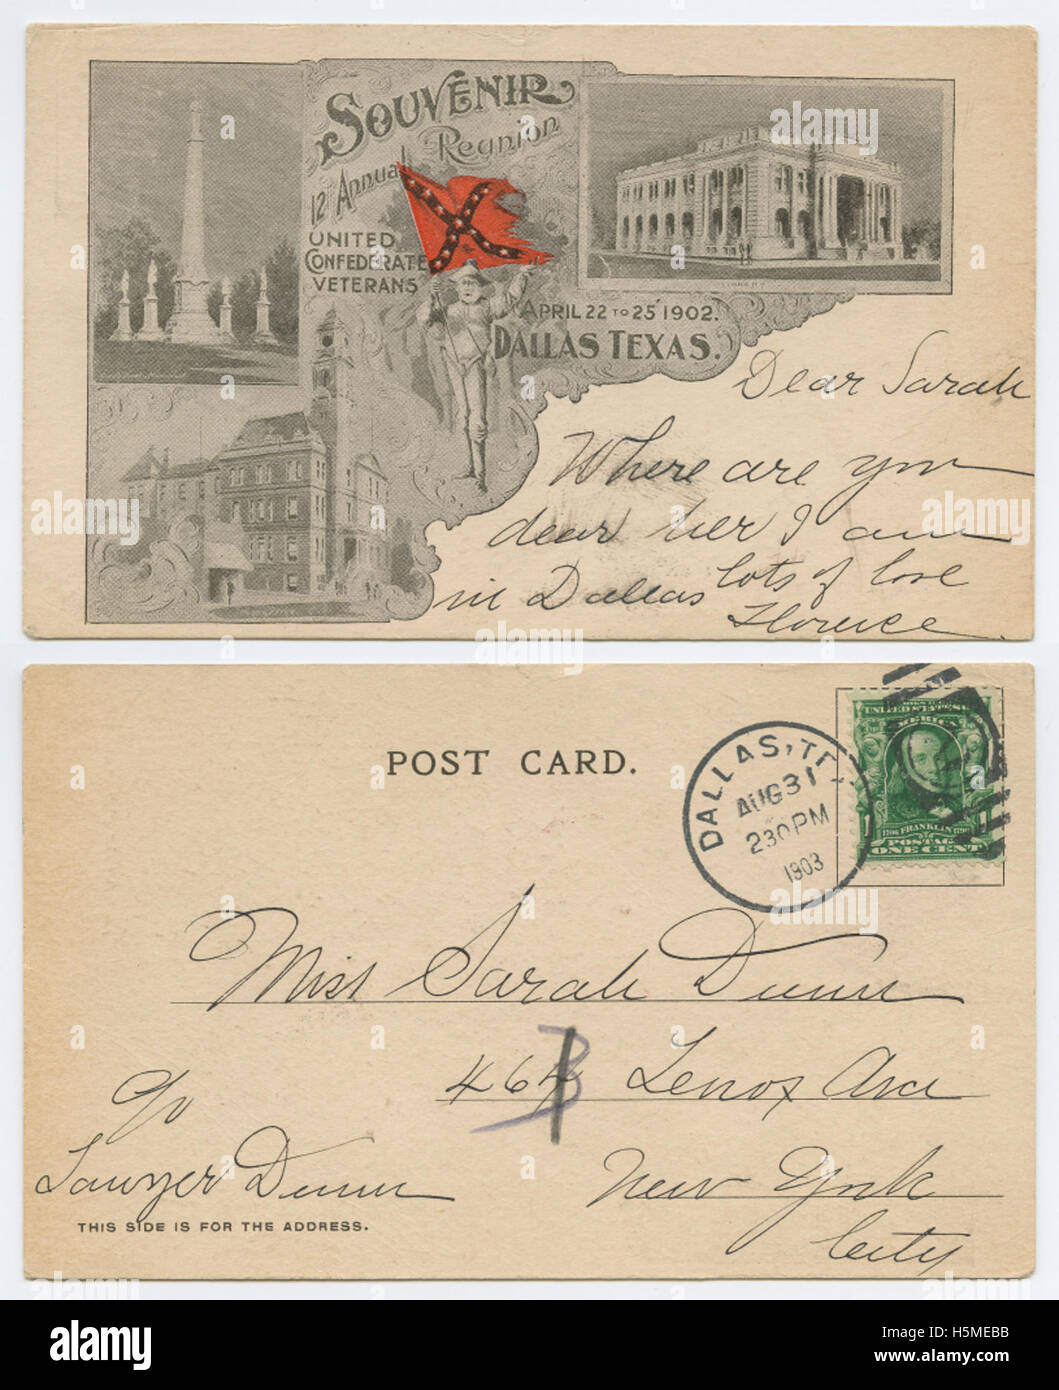 SOUVENIR
12th Annual Reunion
UNITED
CONFEDERATE
VETERANS
APRIL 22 TO 25 1902.
DALLAS TEXAS.
LIBRARY
Dear Sarah
Where are you
dear her I am
in Dallas lots of love
Florence
POST CARD.
DALLAS, TE
AUG 31
2 30 PM
1903
UNITED STATES
AMERICA
1706 FRANKLIN 1790
POSTAGE
1 ONE CENT 1
Miss Sarah Dunn
464 B Lenox Ave
New York
City
Lawyer Dunn
THIS SIDE IS FOR THE ADDRESS.
alamy
Image ID: H5MEBB
www.alamy.com